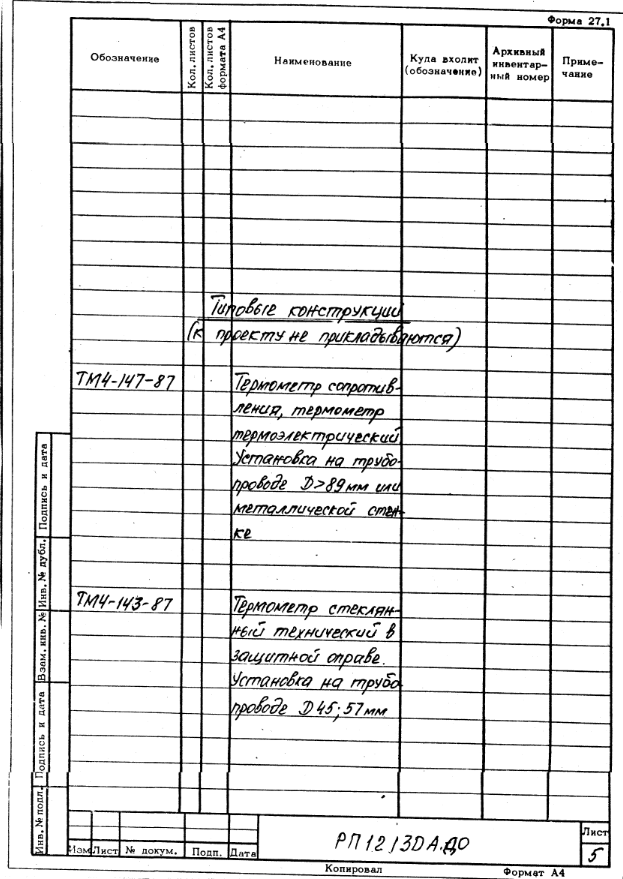 Форма 27.1
Обозначение
Кол. листов
Кол. листов
формата А4
Наименование
Куда входит
(обозначение)
Архивный
инвентар-
ный номер
Приме-
чание
Типовые конструкции
(к проекту не прикладываются)
ТМ4-147-87
Термометр сопротив-
ления, термометр
термоэлектрический
Установка на трубо-
проводе D>89мм или
металлической стен-
ке
ТМ4-143-87
Термометр стеклян-
ный технический в
защитной оправе.
Установка на трубо
проводе D 45; 57мм
Инв. № подл.
Подпись и дата
Взам. инв. №
Инв. № дубл.
Подпись и дата
Изм Лист № докум. Подп. Дата
РП1213DA.ДО
Лист
5
Копировал
Формат А4